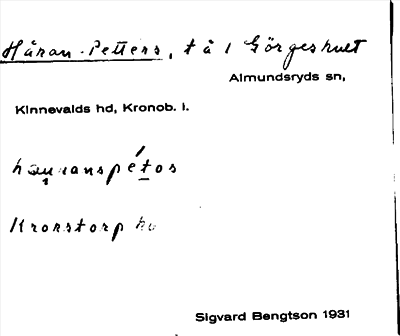 Håran-Petters, tå i Görgeshult
Almundsryds sn,
Kinnevalds hd, Kronob. l.
Kronstorp
Sigvard Bengtson 1931